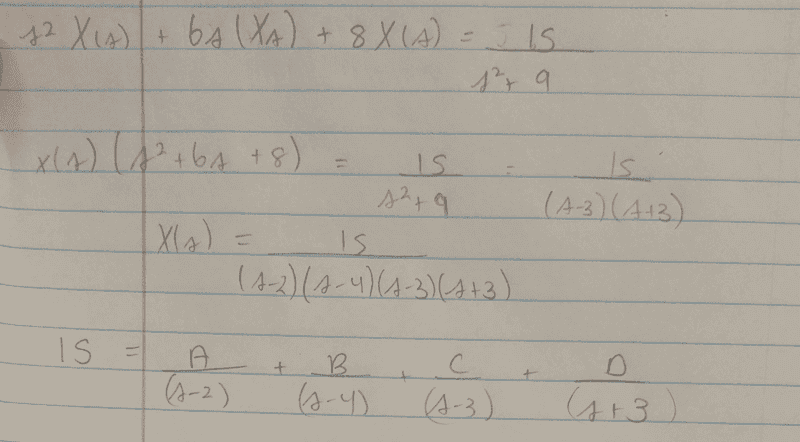 s² X(s) + 6s (Xs) + 8 X(s) = 15 / (s² + 9)
x(s) (s² + 6s + 8) = 15 / (s² + 9) = 15 / ((s-3)(s+3))
X(s) = 15 / ((s-2)(s-4)(s-3)(s+3))
15 = A / (s-2) + B / (s-4) + C / (s-3) + D / (s+3)